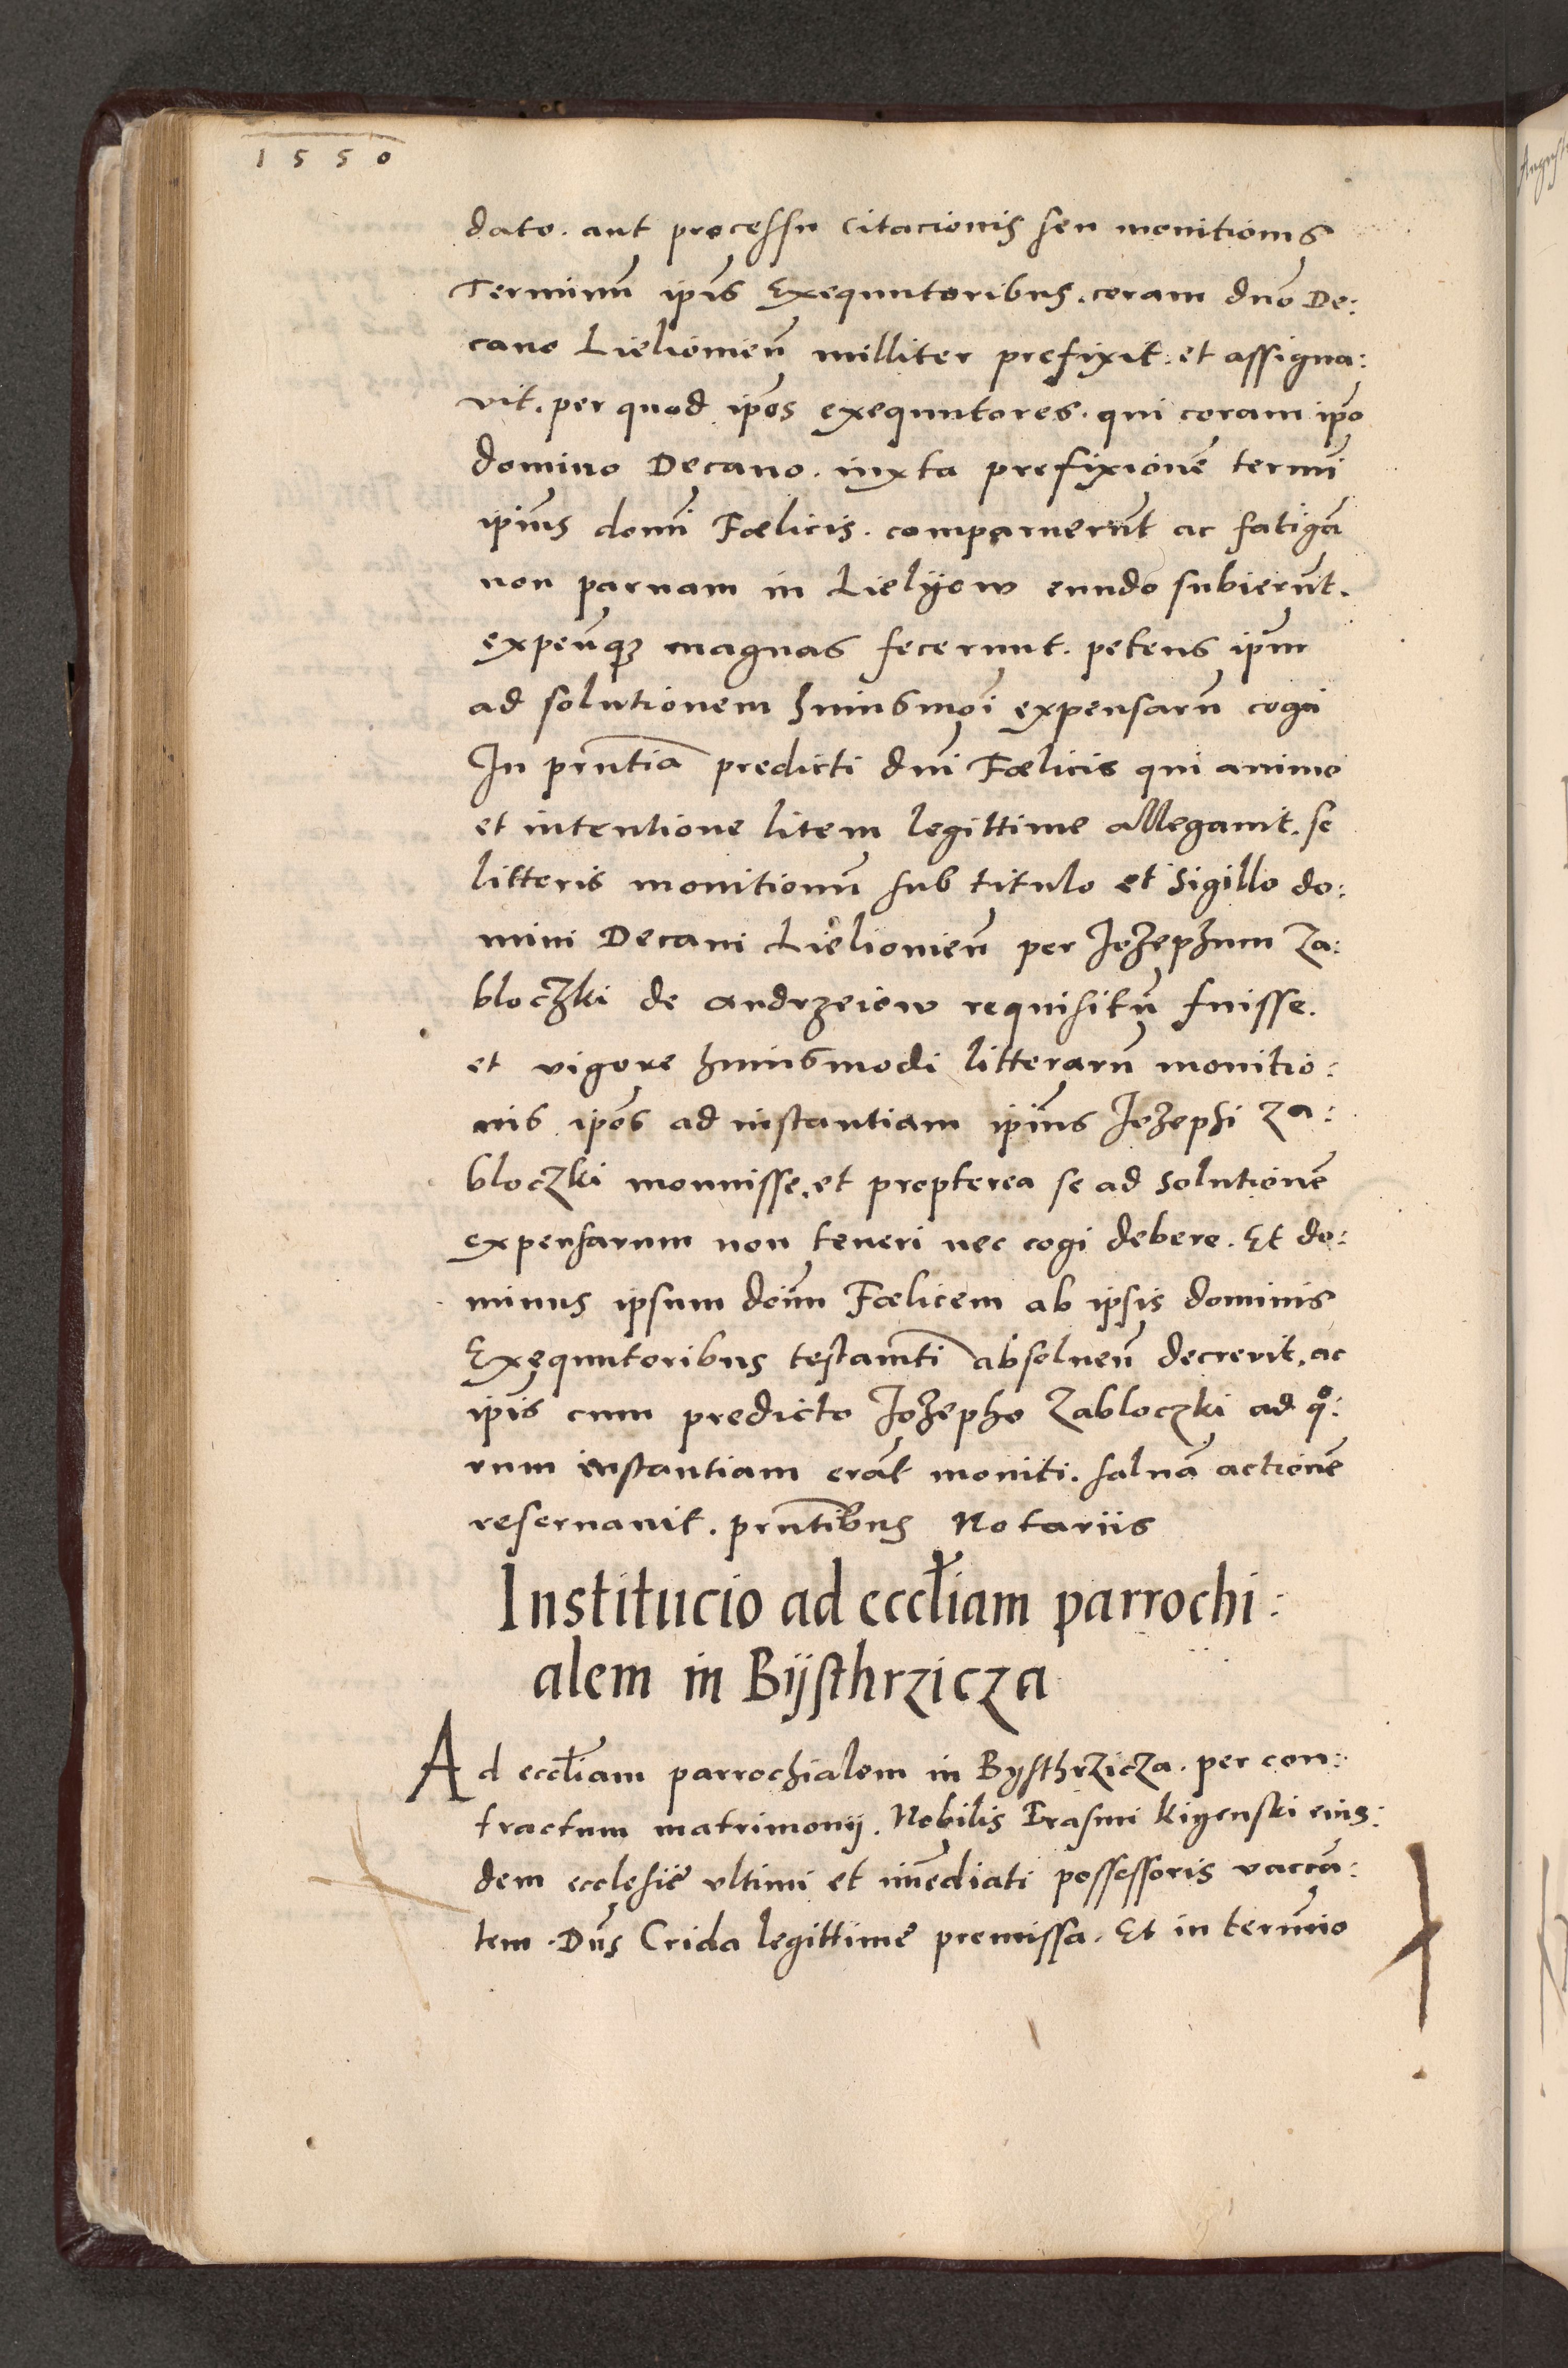 1550
dato. aut processu citacionis seu monitionis
Terminũ ip̃is Exequutoribus. coram dño De:
cano Lielioвień nulliter prefixit. et assigna:
vit. per quod ip̃os exequutores. qui coram ip̃o
domino Decano. iuxta prefixionẽ termi
ip̃ius domi Fœlicis. comparuerũt ac fatigã
non paruam in Lielyow eundo subierũt.
expeñqʒ magnas fecerunt. petens ip̃m
ad solutionem huiusmõi expensarũ cogi
In prñtia predicti dñi Fœlicis qui animo
et intentione litem legittime allegauit. se
litteris monitionũ sub titulo et Sigillo do:
mini Decani Lieliouieñ per Jozephum Za:
bloczki de andrzeiow requisitũ fuisse.
et vigore huiusmodi litterarũ monitio:
nis ip̃os ad instantiam ip̃ius Jozephi Za:
bloczki monuisse. et propterea se ad solutionẽ
expensarum non teneri nec cogi debere. Et do:
minus ipsum doñm Fœlicem ab ipsis dominis
Exequutoribus testamñti absolueñ decrevit. ac
ip̃is cum predicto Jozepho Zabloczki ad qº:
rum instantiam erãt moniti. saluã actionẽ
reseruauit. prñtibus Notariis
Institucio ad eccłiam parrochi:
alem in Bÿsthrzicza
Ad eccłiam parrochialem in Bysthrzicza. per con:
tractum matrimonij. Nobilis Erasmi kiyenski eius:
dem ecclesie vltimi et iñediati possessoris vaccã:
tem. Dñs Crida legittime premissa. Et in termĩo